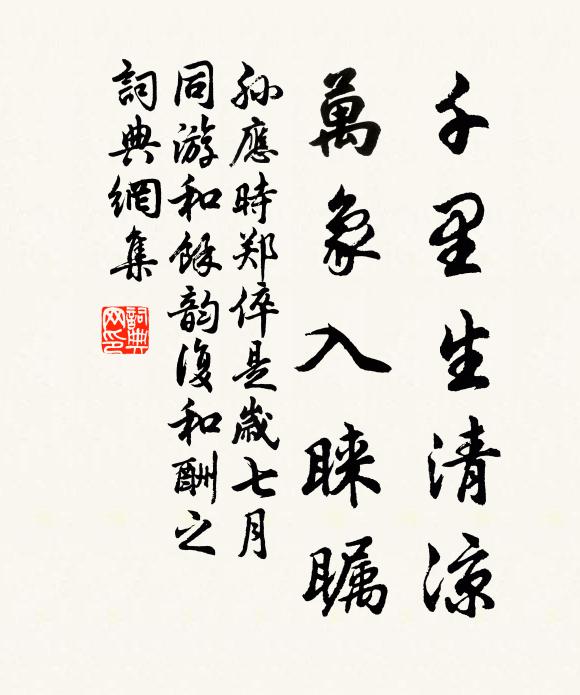 千里生清凉
萬象入睞矚
孙應時郑倅是歲七月
同游和餘韵復和酬之
詞典網集
詞典网印